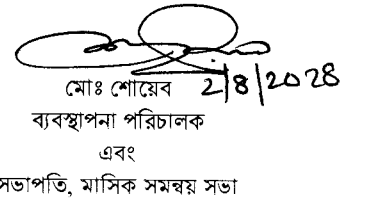 মোঃ শোয়েব ২/৪/২০২৪
ব্যবস্থাপনা পরিচালক
এবং
সভাপতি, মাসিক সমন্বয় সভা